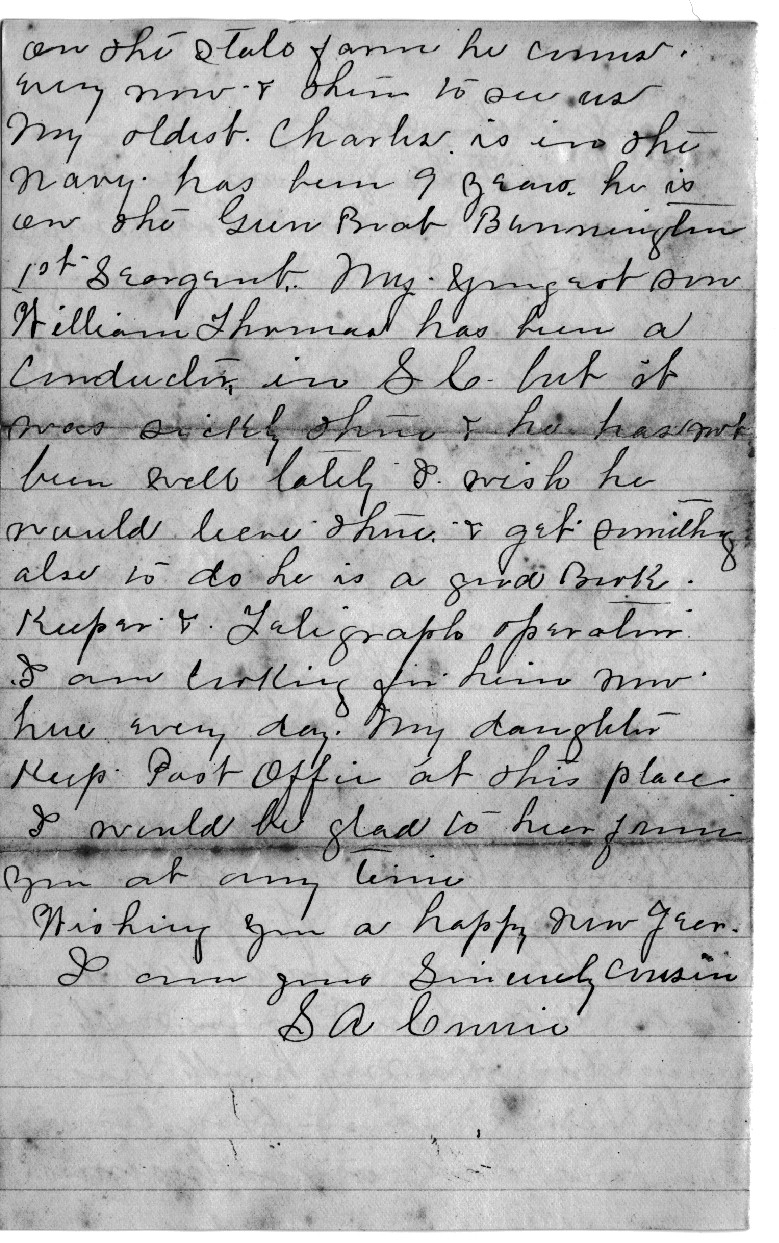 on the State farm he comes.
every now & then to see us
My oldest. Charles. is in the
Navy. has been 9 years. he is
on the Gun Boat Bennington
1st Seargent. My youngest son
William Thomas has been a
Conductor, in S C. but it
was sickly there & he has not
been well lately I wish he
would leave there. & get somithg
else to do he is a good Book.
Keeper & Teligraph operator.
I am looking for him now
here every day. My daughter
Keep Post Office at this place.
I would be glad to hear from
you at any time
Wishing you a happy New Year.
I am your Sincerely Cousin
S A